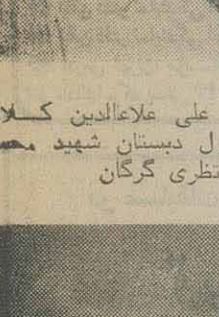 علی علاءالدین کـــلا
ل دبستان شهید محمـ
نتظری گرگان